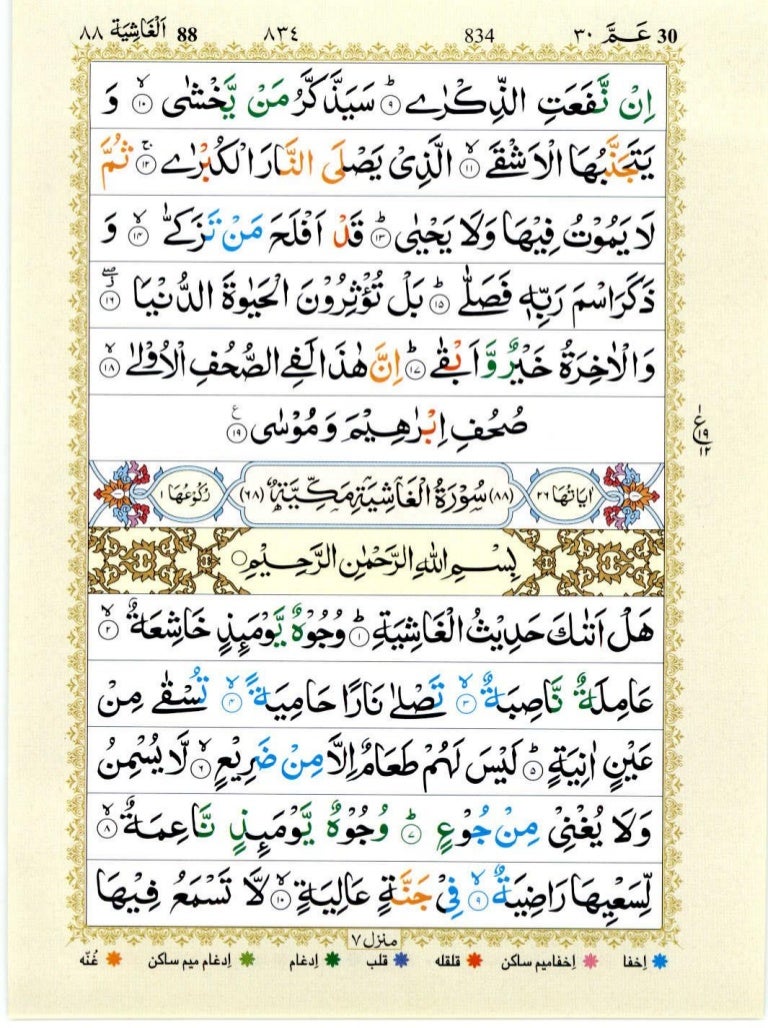 30 عَمَّ ٣٠ 834 ٨٣٤ 88 اَلْغَاشِيَة ٨٨
اِنْ نَّفَعَتِ الذِّكْرٰىؕ ﴿۹﴾ سَيَذَّكَّرُ مَنْ يَّخْشٰىۙ ﴿۱۰﴾ وَ
يَتَجَنَّبُهَا الْاَشْقَىۙ ﴿۱۱﴾ الَّذِىْ يَصْلَى النَّارَ الْكُبْرٰىۚ ﴿۱۲﴾ ثُمَّ
لَا يَمُوْتُ فِيْهَا وَلَا يَحْيٰىؕ ﴿۱۳﴾ قَدْ اَفْلَحَ مَنْ تَزَكّٰىۙ ﴿۱۴﴾ وَ
ذَكَرَ اسْمَ رَبِّهٖ فَصَلّٰىؕ ﴿۱۵﴾ بَلْ تُؤْثِرُوْنَ الْحَيٰوةَ الدُّنْيَا ﴿۱۶﴾
وَالْاٰخِرَةُ خَيْرٌ وَّاَبْقٰىؕ ﴿۱۷﴾ اِنَّ هٰذَا لَفِى الصُّحُفِ الْاُوْلٰىۙ ﴿۱۸﴾
صُحُفِ اِبْرٰهِيْمَ وَمُوْسٰى ﴿۱۹﴾
ع ۱۹ ۱۲
اٰيَاتُهَا ٢٦ (٨٨) سُوْرَةُ الْغَاشِيَةِ مَكِّيَّةٌ (٦٨) رُكُوْعُهَا ١
بِسْمِ اللّٰهِ الرَّحْمٰنِ الرَّحِيْمِ
هَلْ اَتٰىكَ حَدِيْثُ الْغَاشِيَةِؕ ﴿۱﴾ وُجُوْهٌ يَّوْمَئِذٍ خَاشِعَةٌۙ ﴿۲﴾
عَامِلَةٌ نَّاصِبَةٌۙ ﴿۳﴾ تَصْلٰى نَارًا حَامِيَةًۙ ﴿۴﴾ تُسْقٰى مِنْ
عَيْنٍ اٰنِيَةٍؕ ﴿۵﴾ لَيْسَ لَهُمْ طَعَامٌ اِلَّا مِنْ ضَرِيْعٍۙ ﴿۶﴾ لَّا يُسْمِنُ
وَلَا يُغْنِىْ مِنْ جُوْعٍؕ ﴿۷﴾ وُجُوْهٌ يَّوْمَئِذٍ نَّاعِمَةٌۙ ﴿۸﴾
لِّسَعْيِهَا رَاضِيَةٌۙ ﴿۹﴾ فِىْ جَنَّةٍ عَالِيَةٍۙ ﴿۱۰﴾ لَّا تَسْمَعُ فِيْهَا
منزل ٧
اِخفا اِخفامیم ساکن قلقله قلب اِدغام اِدغام میم ساکن غُنّه